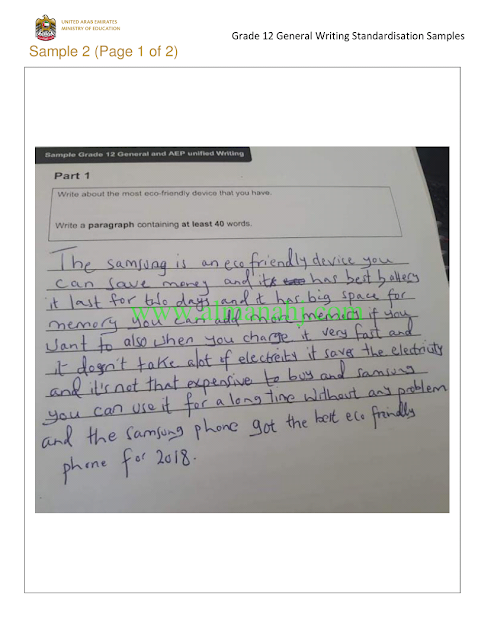 UNITED ARAB EMIRATES
MINISTRY OF EDUCATION
Grade 12 General Writing Standardisation Samples
Sample 2 (Page 1 of 2)
Sample Grade 12 General and AEP unified Writing
Part 1
Write about the most eco-friendly device that you have.
Write a paragraph containing at least 40 words.
The samsung is an eco friendly device you
can save money and it has best battery
it last for two days and it has big space for
memory you can add more memory if you
want to also when you charge it very fast and
it doesn't take alot of electreity it saves the electricity
and it's not that expensive to buy and samsung
you can use it for a long time without any problem
and the samsung phone got the best eco friendly
phone for 2018.